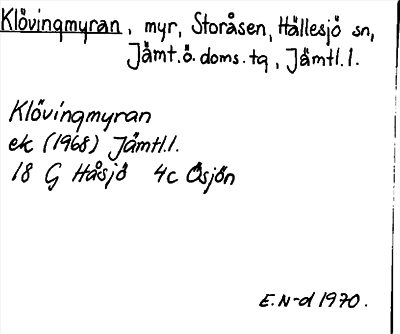 Klövingmyran, myr, Storåsen, Hällesjö sn,
Jämt.ö.doms.tg, Jämtl.l.
Klövingmyran
ek (1968) Jämtl.l.
18 G Håsjö 4c Ösjön
E.N-d 1970.